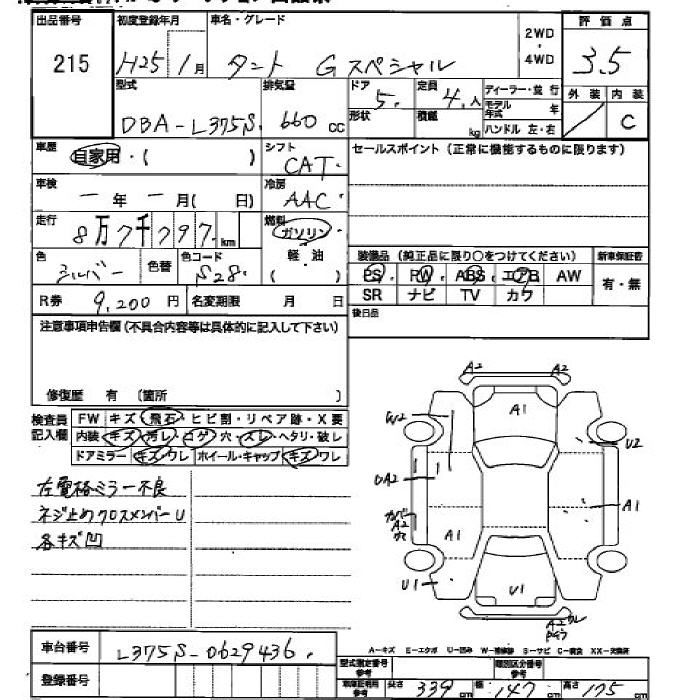 出品番号 初度登録年月 車名・グレード 2WD・4WD 評価点
215 H25年1月 タント Gスペシャル 3.5
型式 排気量 ドア 定員 ディーラー・並行 外装 内装
DBA-L375S. 660cc 5. 4.人 モデル年式 年 C
形状 積載 kg ハンドル 左・右
車歴 自家用・( ) シフト CAT. セールスポイント(正常に機能するものに限ります)
車検 ー年ー月( 日) 冷房 AAC.
走行 8万7千797.km 燃料 ガソリン
色 シルバー 色替 色コード S28. 軽・油 ( )
装備品(純正品に限り○をつけてください) 新車保証書
PS. PW. ABS エアB AW 有・無
SR ナビ TV カワ
R券 9,200円 名変期限 月 日 後日品
注意事項申告欄(不具合内容等は具体的に記入して下さい)
修復歴 有 (箇所 )
検査員記入欄 FW キズ・飛石・ヒビ割・リペア跡・X要
内装 キズ・汚レ・コゲ・穴・スレ・ヘタリ・破レ
ドアミラー キズ・ワレ ホイール・キャップ キズ・ワレ
左電格ミラー不良
ネジ止めクロスメンバーU
各キズ凹
A2 A2
A1
W2
U2
DA2
A1
カバー A2
A1
U1 U1
A2
車台番号 L375S-0629436.
登録番号
A-キズ E-エクボ U-凹み W-補修跡 S-サビ C-腐食 XX-交換済
型式指定番号 参考 類別区分番号 参考
車検証利用 参考 長さ 339cm 幅 147cm 高さ 175cm